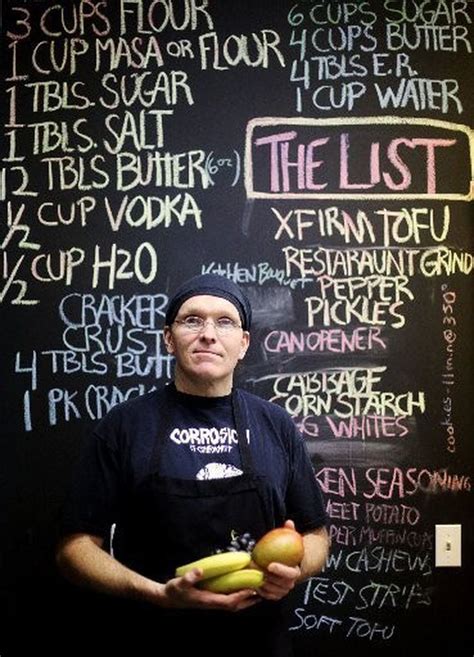 3 CUPS FLOUR
1 CUP MASA OR FLOUR
1 TBLS. SUGAR
1 TBLS. SALT
12 TBLS BUTTER (6oz)
1/2 CUP VODKA
1/2 CUP H2O
CRACKER
CRUST
4 TBLS BUTT
1 PK CRACK
6 CUPS SUGAR
4 CUPS BUTTER
4 TBLS E.R.
1 CUP WATER
THE LIST
XFIRM TOFU
RESTARAUNT GRIND
PEPPER
KITCHEN BOUQUET
PICKLES
CAN OPENER
CABBAGE
CORN STARCH
GG WHITES
KEN SEASONING
WEET POTATO
PER MUFFIN CUPS
W CASHEWS
TEST STRIPS
SOFT TOFU
CORROSION